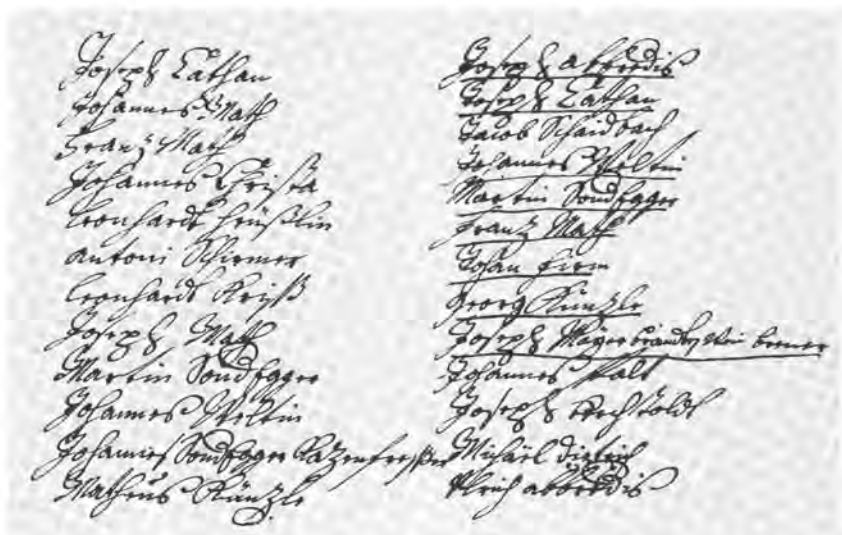 Joseph Lathan
Johannes Math
Franz Math
Johannes Christa
Leonhardt
Antoni Schirmer
Leonhardt
Joseph Math
Martin Sondegger
Johannes Weltin
Johannes Sondegger Kazenfresser
Matheus Künzle
Joseph Abbredis
Joseph Lathan
Jacob Schaidbach
Johannes Weltin
Martin Sondegger
Franz Math
Johan Firm
Georg Künzle
Joseph Mayer brandtwein brener
Johannes Walt
Joseph
Michael Dietrich
Ulrich Abbredis